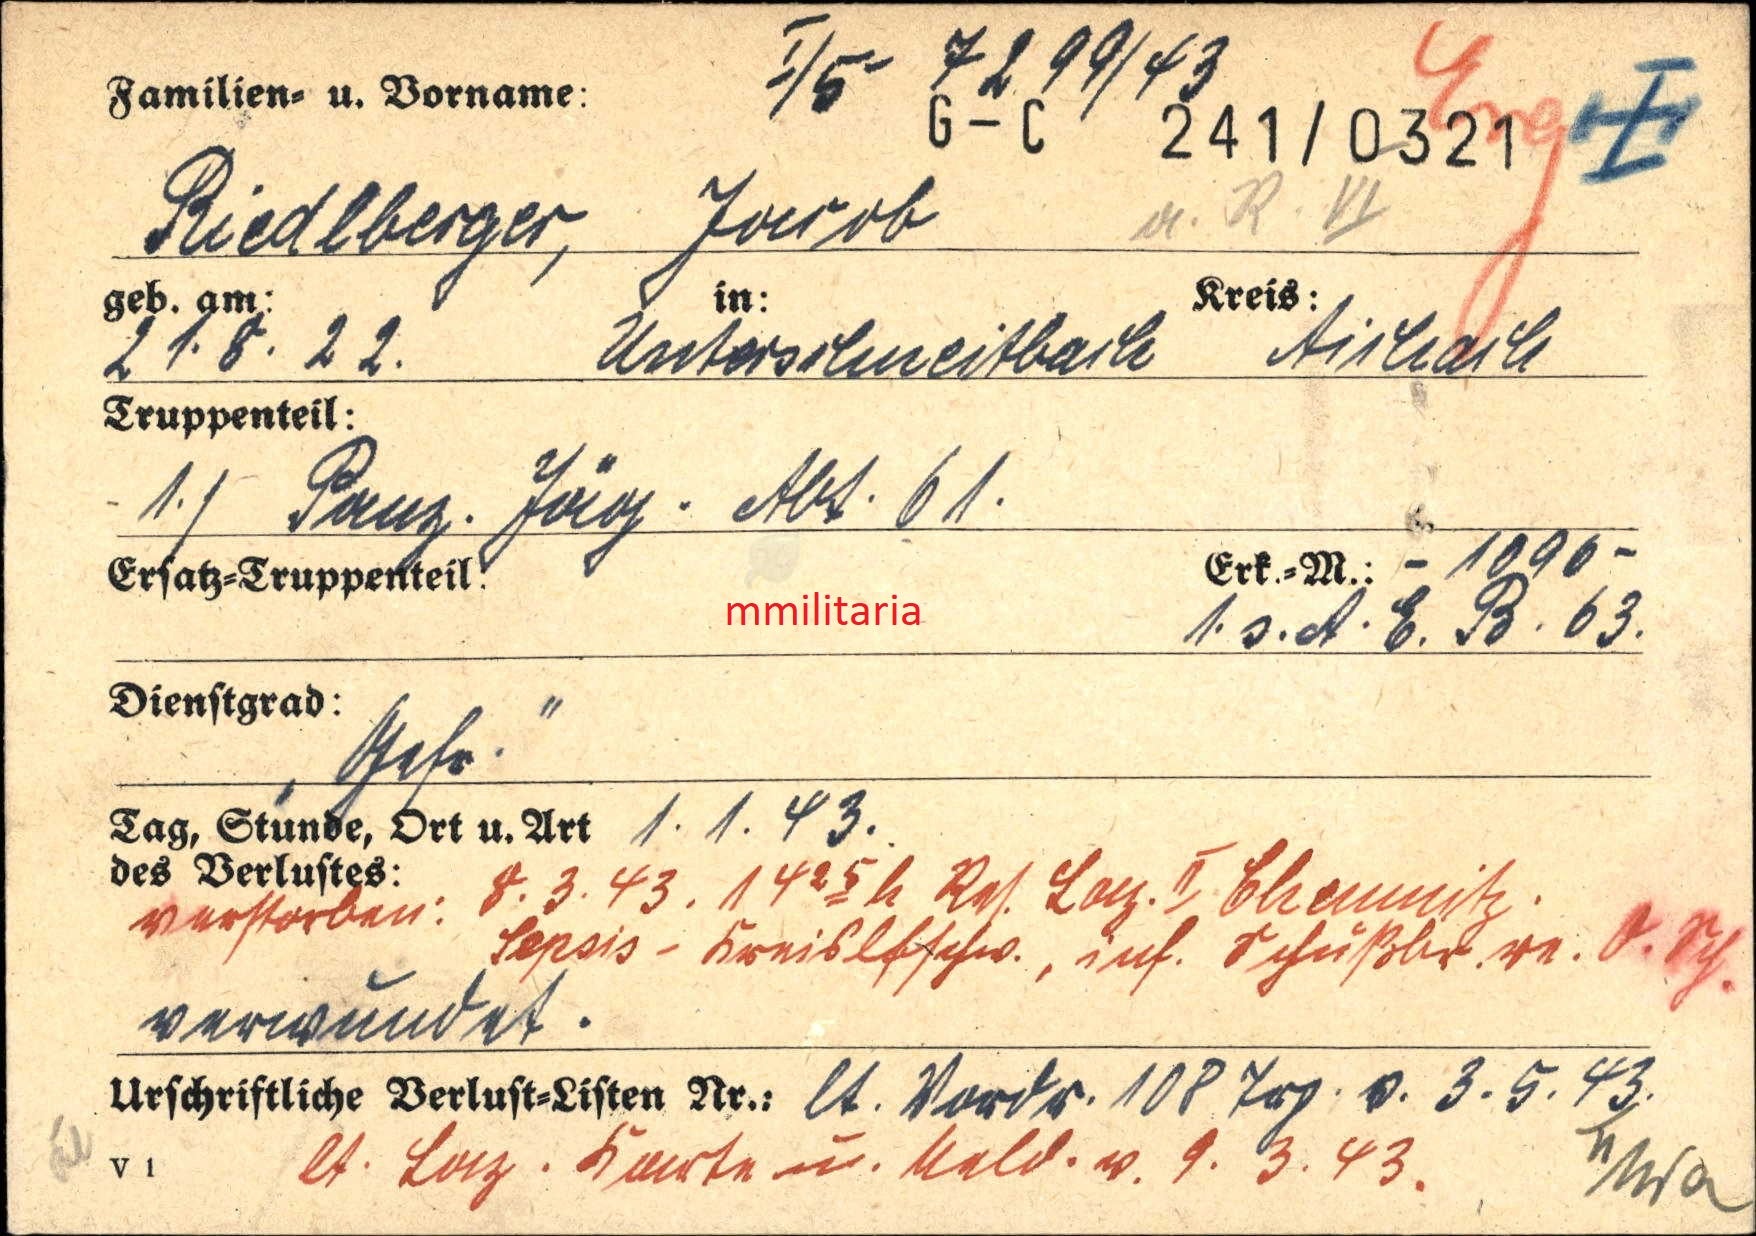 I/5- 7299/43
Familien- u. Vorname:
G-C 241/0321
Riedlberger, Jacob a. R. VI
geb. am: in: Kreis:
21.8.22. Unterschneitbach Aichach
Truppenteil:
- 1.) Panz. Jäg. Abt. 61.
Ersatz-Truppenteil: Erk.-M.: - 1090-
mmilitaria
1. s. A. E. B. 63.
Dienstgrad:
„Gefr."
Tag, Stunde, Ort u. Art 1. 1. 43.
des Verlustes:
verstorben: 8. 3. 43. 14 25 h Res. Laz. II Chemnitz.
Sepsis - Kreislfschw., inf. Schußbr. re. O. Sch.
verwundet.
Urschriftliche Verlust-Listen Nr.: lt. Vordr. 108 v. 3. 5. 43.
V 1 lt. Laz. Karte u. Meld. v. 9. 3. 43.